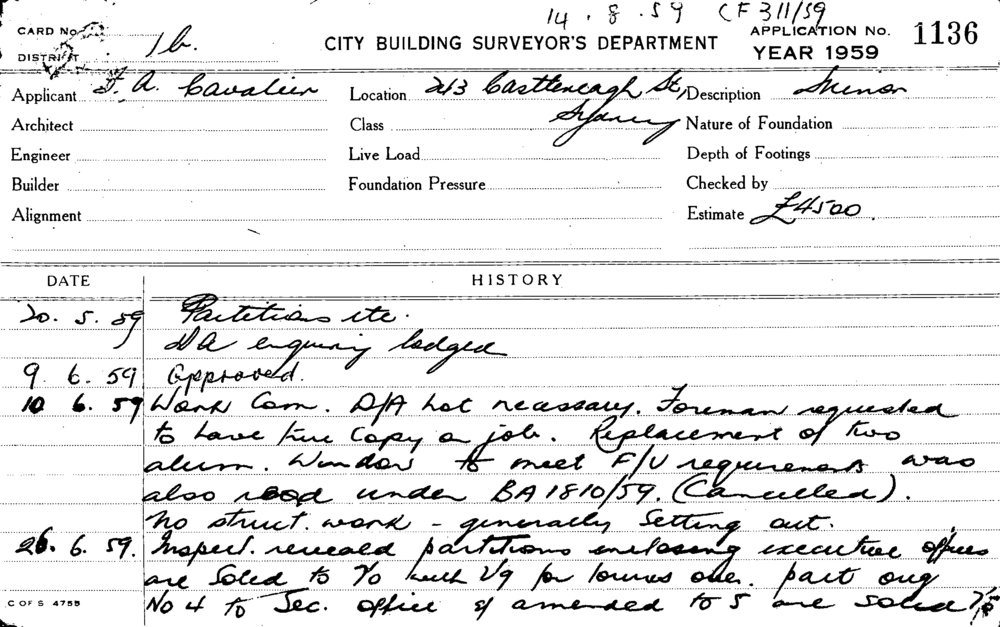 14.8.59 CF311/59
CARD No.
DISTRICT 1b.
CITY BUILDING SURVEYOR'S DEPARTMENT
APPLICATION No. 1136
YEAR 1959
Applicant F. A. Cavalier Location 213 Castlereagh St, Sydney Description Minor
Architect Class Nature of Foundation
Engineer Live Load Depth of Footings
Builder Foundation Pressure Checked by
Alignment Estimate £4500.
DATE HISTORY
20. 5. 59 Partitions etc.
DA enquiry lodged
9. 6. 59 Approved.
10 6. 59 Work Com. D/A not necessary. Foreman requested
to have true copy on job. Replacement of two
alum. Window to meet F/U requirements was
also under BA1810/59. (Cancelled).
No struct. work - generally setting out.
26. 6. 59. Inspect. reveald partitions enclosing executive offices
are Soled to with for one. part orig
No 4 to Sec. office amended to 5 are soled
C OF S 4755